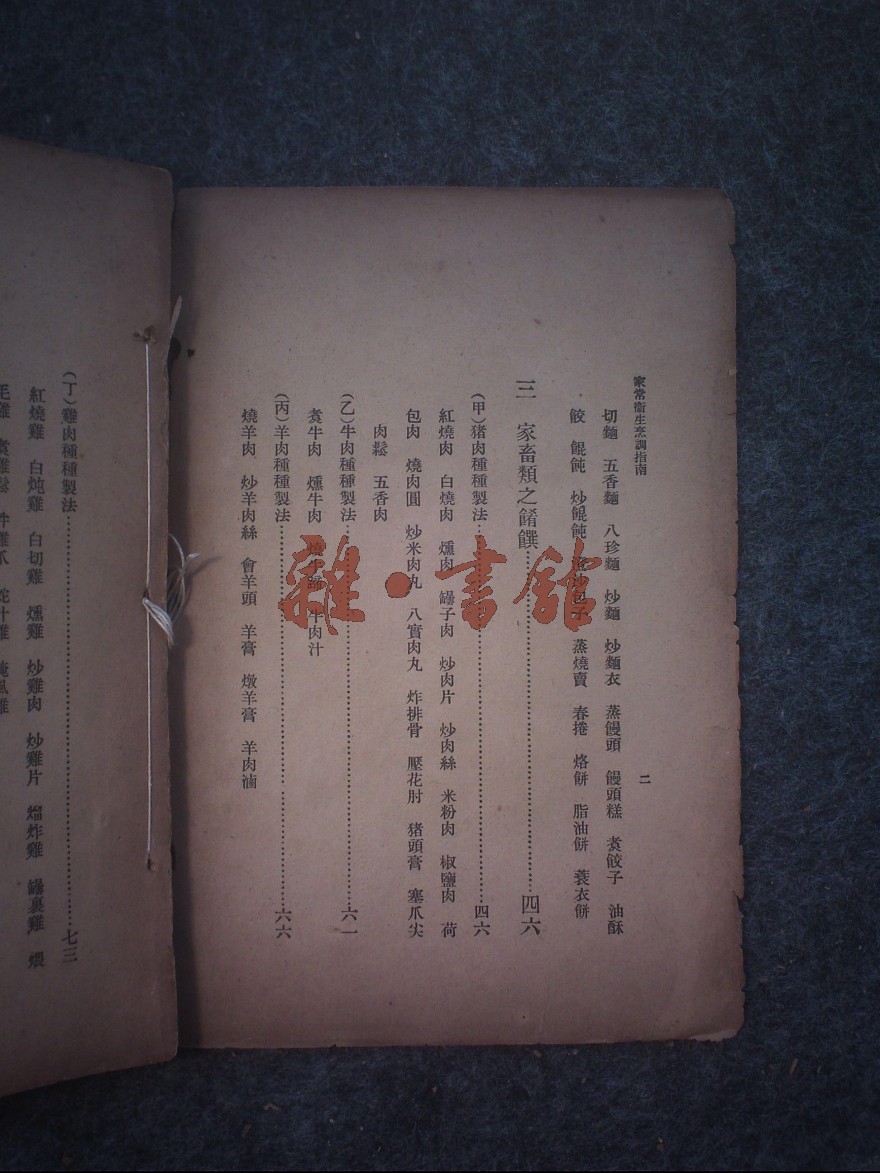 家常衞生烹調指南
二
切麵 五香麵 八珍麵 炒麵 炒麵衣 蒸饅頭 饅頭糕 煑餃子 油酥
餃 餛飩 炒餛飩 沙包子 蒸燒賣 春捲 烙餅 脂油餅 蓑衣餅
三 家畜類之餚饌⋯⋯四六
(甲)猪肉種種製法⋯⋯四六
紅燒肉 白燒肉 燻肉 罎子肉 炒肉片 炒肉絲 米粉肉 椒鹽肉 荷
包肉 燒肉圓 炒米肉丸 八寶肉丸 炸排骨 壓花肘 猪頭膏 塞爪尖
肉鬆 五香肉
(乙)牛肉種種製法⋯⋯六一
煑牛肉 燻牛肉 燒牛蹄 牛肉汁
(丙)羊肉種種製法⋯⋯六六
燒羊肉 炒羊肉絲 會羊頭 羊膏 燉羊膏 羊肉滷
(丁)雞肉種種製法⋯⋯七三
紅燒雞 白炖雞 白切雞 燻雞 炒雞肉 炒雞片 熘炸雞 罎裏雞 煨
毛雞 煑雞鬆 雞爪 雞
雜·書館